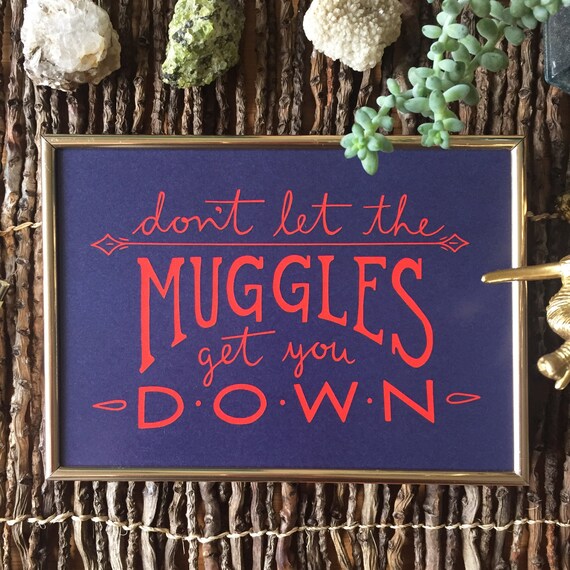 don't let the
MUGGLES
get you
D·O·W·N